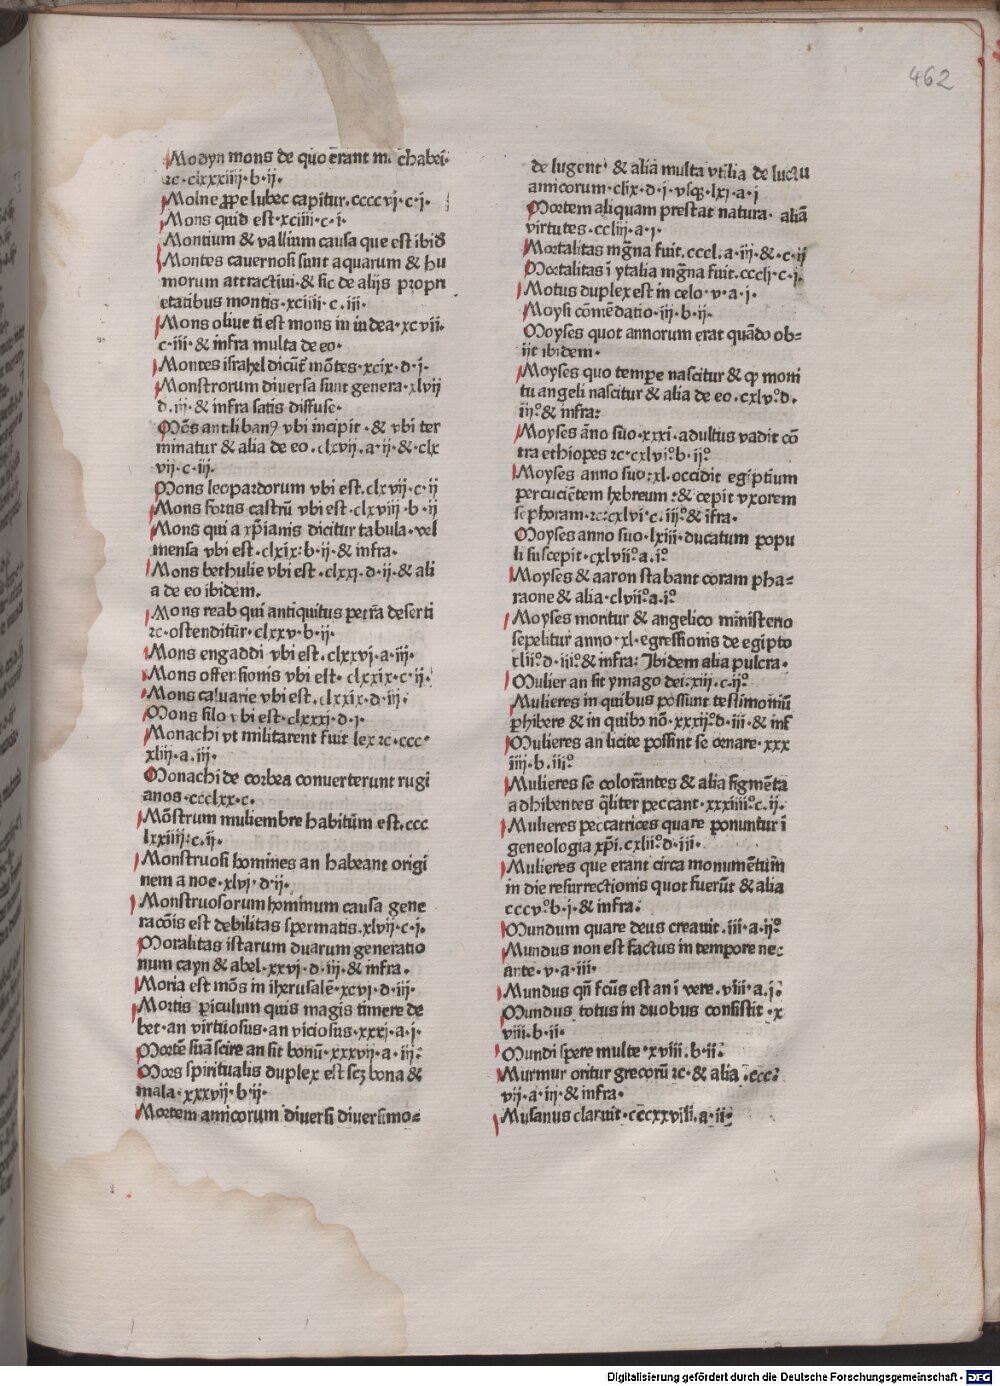 462
Modyn mons de quo erant m. chabei·
⁊c·clxxxiiij·b·ij·
Molne ꝓpe lubec capitur·ccccvj·c·j·
Mons quid est·xciiij·c·j·
Montium & vallium causa que est ibid̄
Montes cavernosi sunt aquarum & hu
morum attractiui·& sic de alijs propri
etatibus montis·xciiij·c·iii·
Mons oliue ti est mons in iudea·xcvij·
c·iij·& infra multa de eo·
Montes israhel dicūt᷑ mōtes·xcix·d·j·
Monstrorum diversa sunt genera·xlvij
d·iij·& infra satis diffuse·
Mōs antilibanꝰ vbi incipit·& vbi ter
minatur & alia de eo·clxvij·a·ij·& clx
vij·c·iij·
Mons leopardorum vbi est·clxvij·c·ij
Mons fortis castrū vbi est·clxviij·b·ij
Mons qui a xp̄ianis dicitur tabula·vel
mensa vbi est·clxix:b·ij·& infra·
Mons bethulie vbi est·clxxj·d·ij·& ali
a de eo ibidem·
Mons reab qui antiquitus petra deserti
⁊c·ostenditur·clxxv·b·ij·
Mons engaddi vbi est·clxxvj·a·iij·
Mons offensionis vbi est·clxxix·c·ij·
Mons caluarie vbi est·clxxix·d·iij·
Mons silo vbi est·clxxxj·d·j·
Monachi vt militarent fuit lex ⁊c·ccc·
xliij·a·iij·
Monachi de corbea converterunt rugi
anos·ccclxx·c·
Mōstrum muliembre habitum est·ccc
lxxiiij:c·ij·
Monstruosi homines an habeant origi
nem a noe·xlvj·d·ij·
Monstruosorum hominum causa gene
racōis est debilitas spermatis·xlvij·c·j·
Moralitas istarum duarum generatio
num cayn & abel·xxvj·d·iij·& infra·
Moria est mōs in iherusalē·xcvj·d·iij·
Mortis ꝑiculum quis magis timere de
bet·an virtuosus·an viciosus·xxxj·a·j·
Mortē suā scire an sit bonū·xxxvij·a·iij:
Mors spiritualis duplex est scꝫ bona &
mala·xxxvij·b·ij·
Mortem amicorum diversi diversimo=
de lugent & alia multa vtilia de luctu
amicorum·clix·d·j·vsqꝫ·lxj·a·j
Mortem aliquam prestat natura·aliā
virtutes·ccliij·a·j·
Mortalitas mḡna fuit·cccl·a·iij·&·c·ij
Mortalitas ī ytalia mḡna fuit·ccclj·c·j·
Motus duplex est in celo·v·a·j·
Moysi cōmēdatio·iij·b·ij·
Moyses quot annorum erat quādo ob=
ijt ibidem·
Moyses quo tempe nascitur & ꝙ moni
tu angeli nascitur & alia de eo·cxlv:°d·
iij:°& infra:
Moyses āno suo·xxxj·adultus vadit cō
tra ethiopes ⁊c·cxlvj:°b·ij:°
Moyses anno suo:xl·occidit egiptium
percuciētem hebreum:& cepit vxorem
sephoram·⁊c:cxlvj·c·iij:°& īfra·
Moyses anno suo·lxiij·ducatum popu
li suscepit·cxlvij:°a·j:°
Moyses & aaron stabant coram pha=
raone & alia·clvij:°a·j:°
Moyses moritur & angelico ministerio
sepelitur anno·xl·egressionis de egipto
clij:°d·iij:°& infra: Ibidem alia pulcra·
Mulier an sit ymago dei:xiij·c·ij:°
Mulieres in quibus possunt testimoniū
ꝑhibere & in quibꝰ nō·xxxij:°d·iij·& inf
Mulieres an licite possint se ornare·xxx
iiij·b·iij:°
Mulieres se colorantes & alia figmēta
adhibentes q̄liter peccant·xxxiiij:°c·ij·
Mulieres peccatrices quare ponuntur ī
geneologia xp̄i·cxlij:°d·iij·
Mulieres que erant circa monumētum
in die resurrectionis quot fuerūt & alia
cccv:°b·j·& infra:
Mundum quare deus creauit·iij·a·ij:°
Mundus non est factus in tempore nec
ante·v·a·iij·
Mundus qn̄ fcūs est an ī vere·viij·a·j:
Mundus totus in duobus consistit·x
viii·b·ij·
Mundi spere multe·xviii·b·ij:
Murmur oritur grecorū ⁊c·& alia·ccc:
vij·a·iij·& infra·
Musanus claruit·cccxxviij·a·ij:
Digitalisierung gefördert durch die Deutsche Forschungsgemeinschaft - DFG